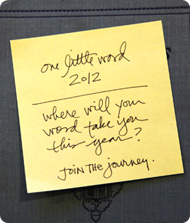 one little word
2012
where will your
word take you
this year?
JOIN THE JOURNEY.